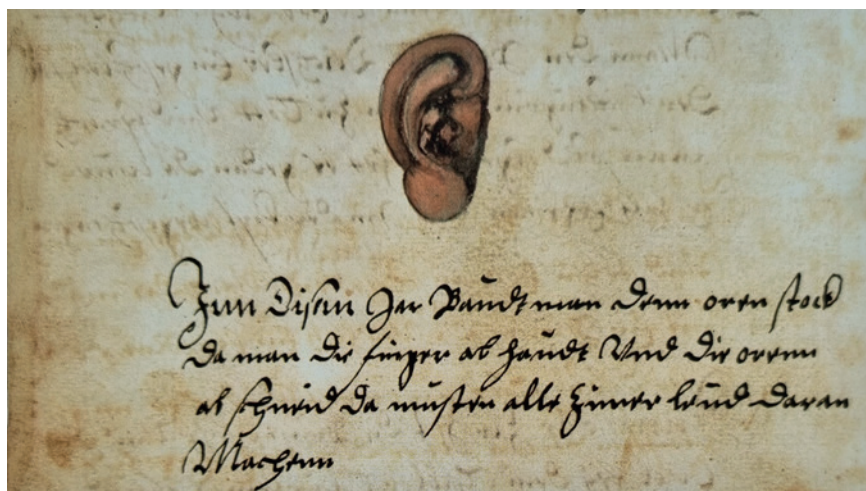 Jnn Disem Jar Baudt man denn oren stock
da man die finger ab haudt Vnd die orenn
ab schneid da musten alle Zimer leud daran
Machenn